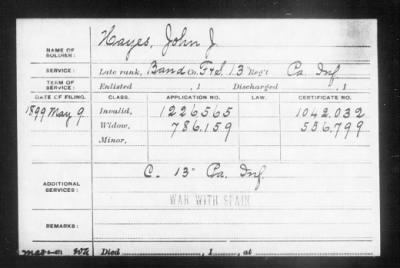 Hayes, John J.
NAME OF SOLDIER:
SERVICE: Late rank, Band Co. F&S, 13 Reg't Pa. Inf.
TERM OF SERVICE: Enlisted , 1 Discharged , 1
DATE OF FILING. CLASS. APPLICATION NO. LAW. CERTIFICATE NO.
1899 May 9 Invalid, 1226565 1042.032
Widow, 786.159 556,799
Minor,
C. 13" Pa. Inf.
ADDITIONAL SERVICES:
WAR WITH SPAIN
REMARKS:
Died , 1 , at